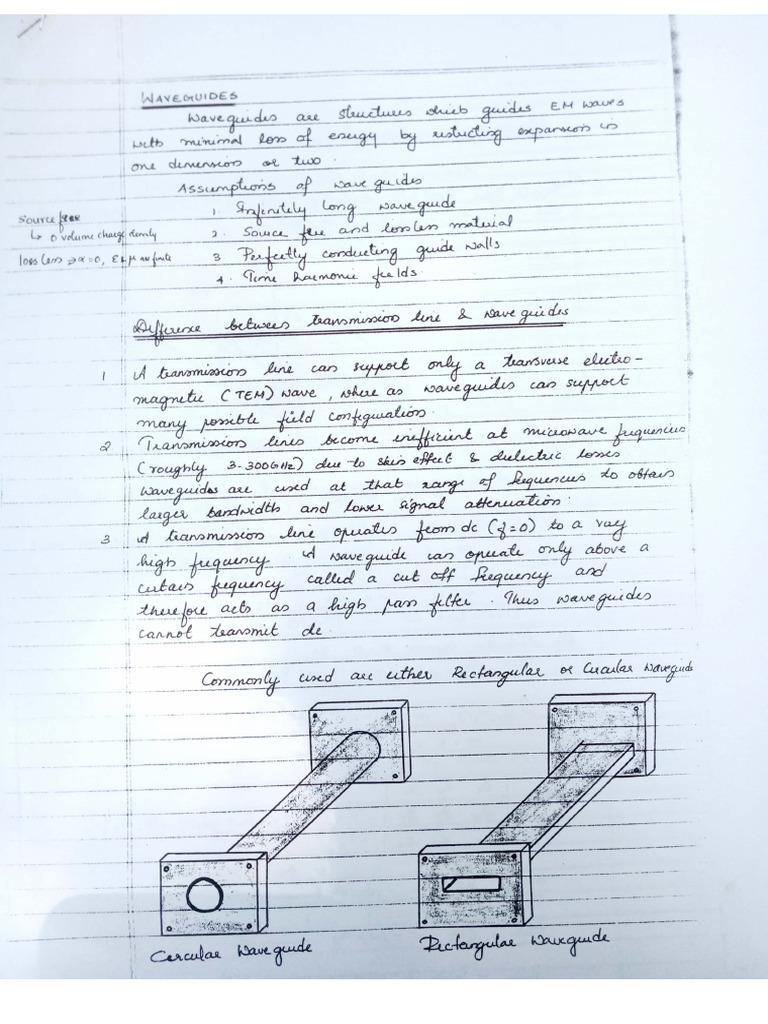 WAVEGUIDES
Waveguides are structures which guides EM waves
with minimal loss of energy by restricting expansion in
one dimension or two.
Assumptions of wave guides
1. Infinitely long waveguide
2. Source free and lossless material
3 Perfectly conducting guide walls
4. Time harmonic fields.
Source free
↳ 0 volume charge density
loss less ⇒ α=0, ε & μ are finite
Difference between transmission line & wave guides
1 A transmission line can support only a transverse electro-
magnetic (TEM) wave, where as waveguides can support
many possible field configuration.
2 Transmission lines become inefficient at microwave frequencies
(roughly 3-300GHz) due to skin effect & dielectric losses
waveguides are used at that range of frequencies to obtain
larger bandwidth and lower signal attenuation.
3 A transmission line operates from dc (f=0) to a vay
high frequency. A waveguide can operate only above a
certain frequency called a cut off frequency and
therefore acts as a high pass filter. Thus waveguides
cannot transmit dc.
Commonly used are either Rectangular or Circular Waveguide
Circular Waveguide
Rectangular Waveguide